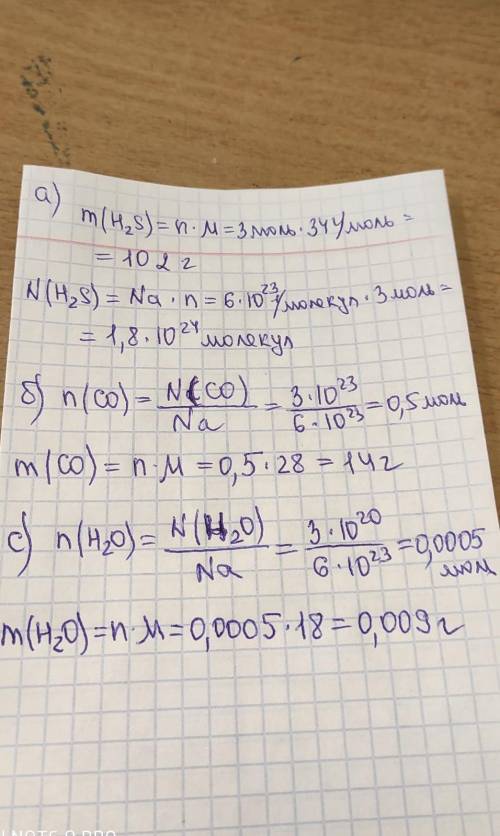 а)
m(H₂S) = n · M = 3 моль · 34 г/моль =
= 102 г
N(H₂S) = Na · n = 6 · 10²³ 1/молекул · 3 моль =
= 1,8 · 10²⁴ молекул
б) n(CO) = N(CO)/Na = 3 · 10²³/6 · 10²³ = 0,5 мол
m(CO) = n · M = 0,5 · 28 = 14 г
c) n(H₂O) = N(H₂O)/Na = 3 · 10²⁰/6 · 10²³ = 0,0005 мол
m(H₂O) = n · M = 0,0005 · 18 = 0,009 г